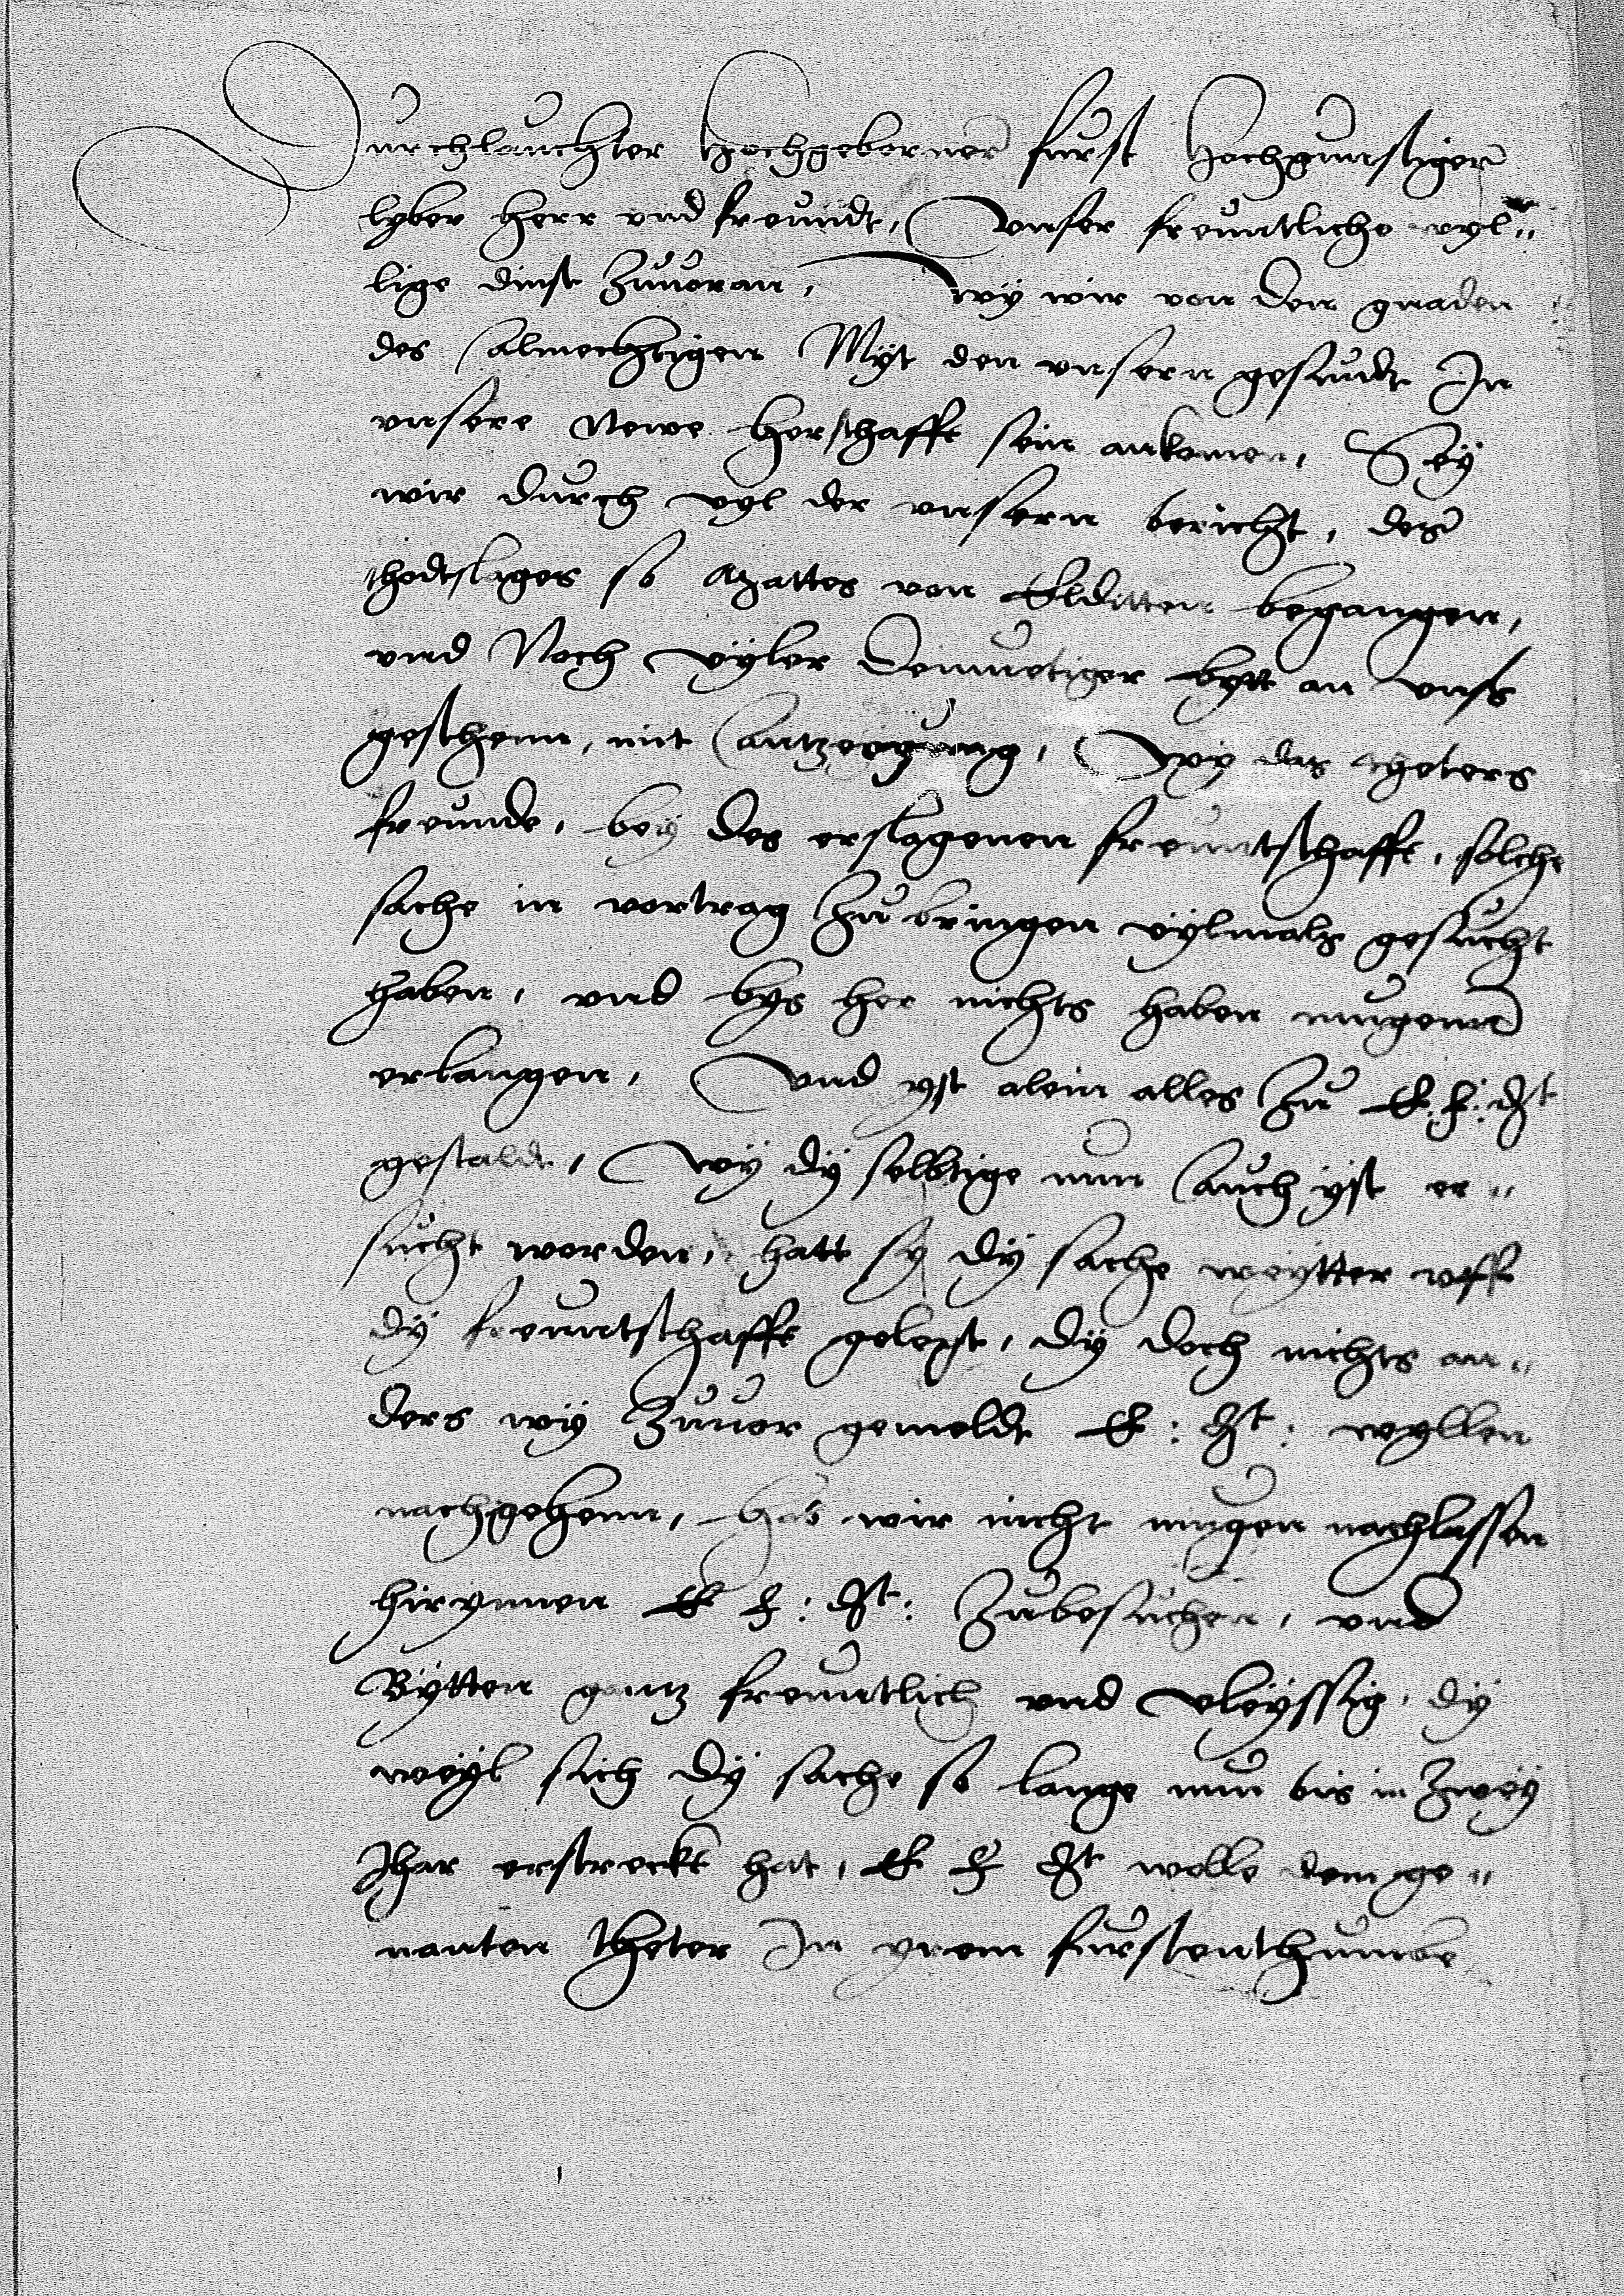 Durchlauchter Hochgeborner furst Hochgunstiger
lyber herr vnd freundt, Vnser freuntliche wyl„
lige dinst Zuuoran, Wÿ wir von den gnaden
des Almechtigen Mÿt den vnsern gesundt In
vnsere Newe herschafft sein ankomen, Seÿ
wir durch vyl der vnsern bericht, des
thodtslages so Mattes von Elditten begangen,
vnd Noch vÿler demuetiger bytt an vnss
geschenn, mit Antzeygung, Wy des theters
freunde, beÿ des erslagenen freuntschafft, solche
sache in vortrag Zu bringen vÿlmals gesucht
haben, vnd bys her nichts haben mugenn
erlangen, Vnd yst alein alles Zu E: f: dt
gestaldt, Wÿ dÿ selbtige nun Auch ÿst er„
sucht worden, hatt sy dÿ sache weÿtter vff
dÿ freuntschafft gelegt, dÿ doch nichts an„
ders wÿ Zuuor gemeldt E: dt: wyllen
nachgehenn, hab wir nicht mugen nachlassen
hirynnen E f: dt: Zubesuchen, vnd
Bÿtten gantz freuntlich vnd vleÿssig, dÿ
weÿl sich dÿ sache so lange nun bis in Zweÿ
Jhar erstreckt hat, E f dt wolle dem ge„
nanten theter In yrem furstenthumbe